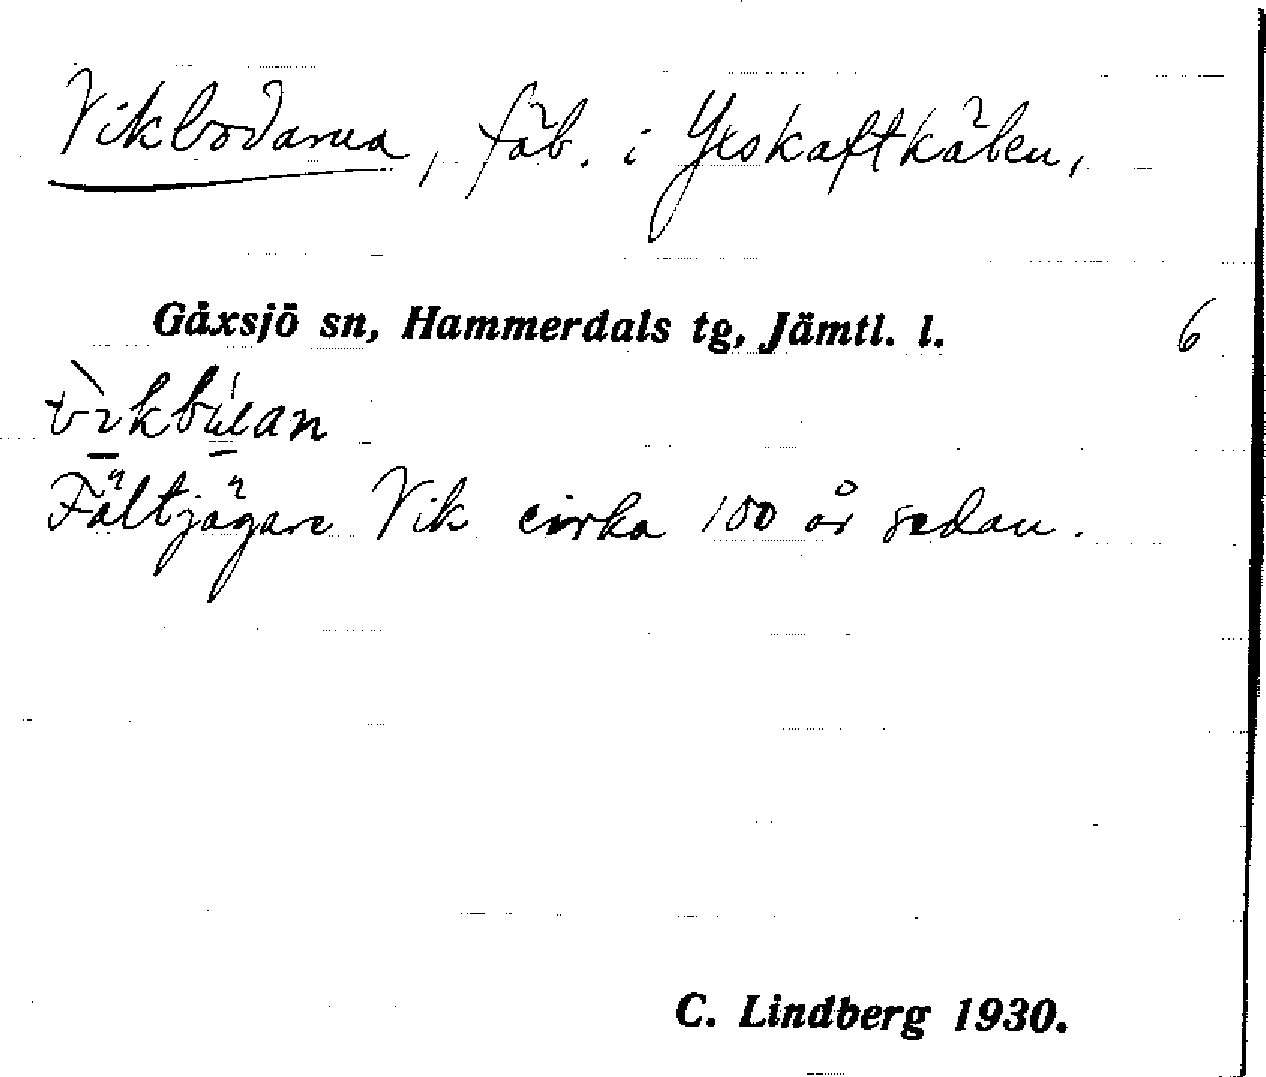 Vikbodarna, fäb. i Yxskaftkälen,
Gåxsjö sn, Hammerdals tg, Jämtl. l. 6
Fältjägare Vik cirka 100 år sedan.
C. Lindberg 1930.